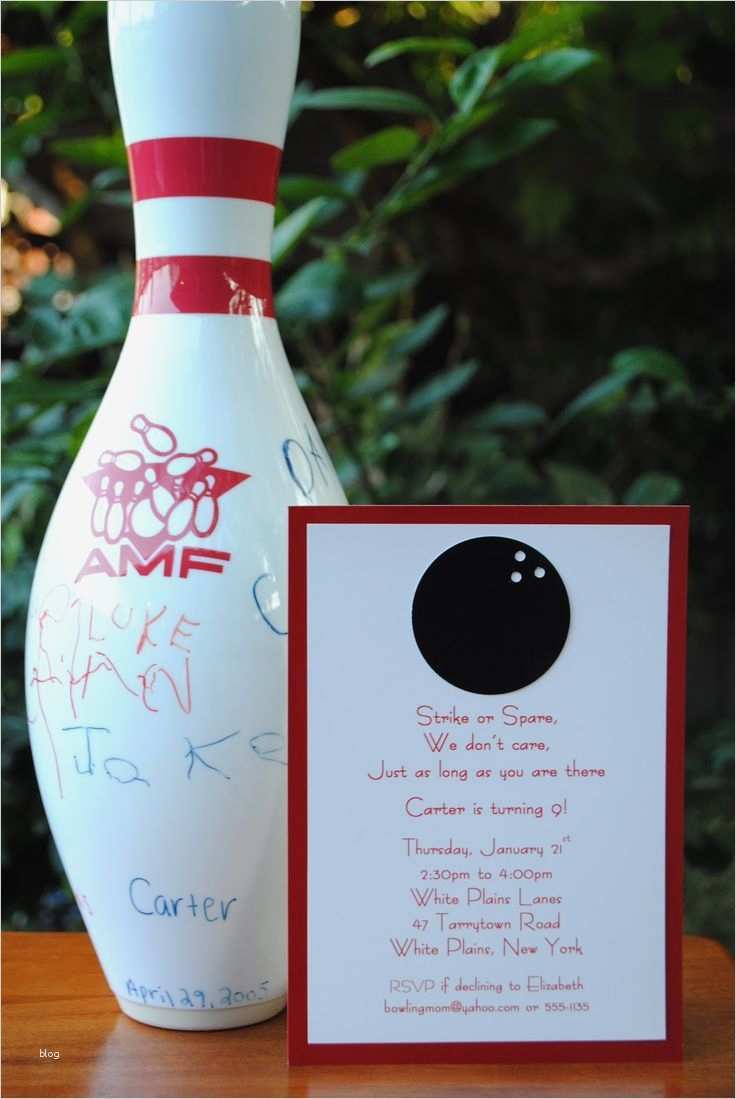 AMF
LUKE
Jake
Carter
April 29, 2005
Strike or Spare,
We don't care,
Just as long as you are there
Carter is turning 9!
Thursday, January 21st
2:30pm to 4:00pm
White Plains Lanes
47 Tarrytown Road
White Plains, New York
RSVP if declining to Elizabeth
bowlingmom@yahoo.com or 555-1135
blog